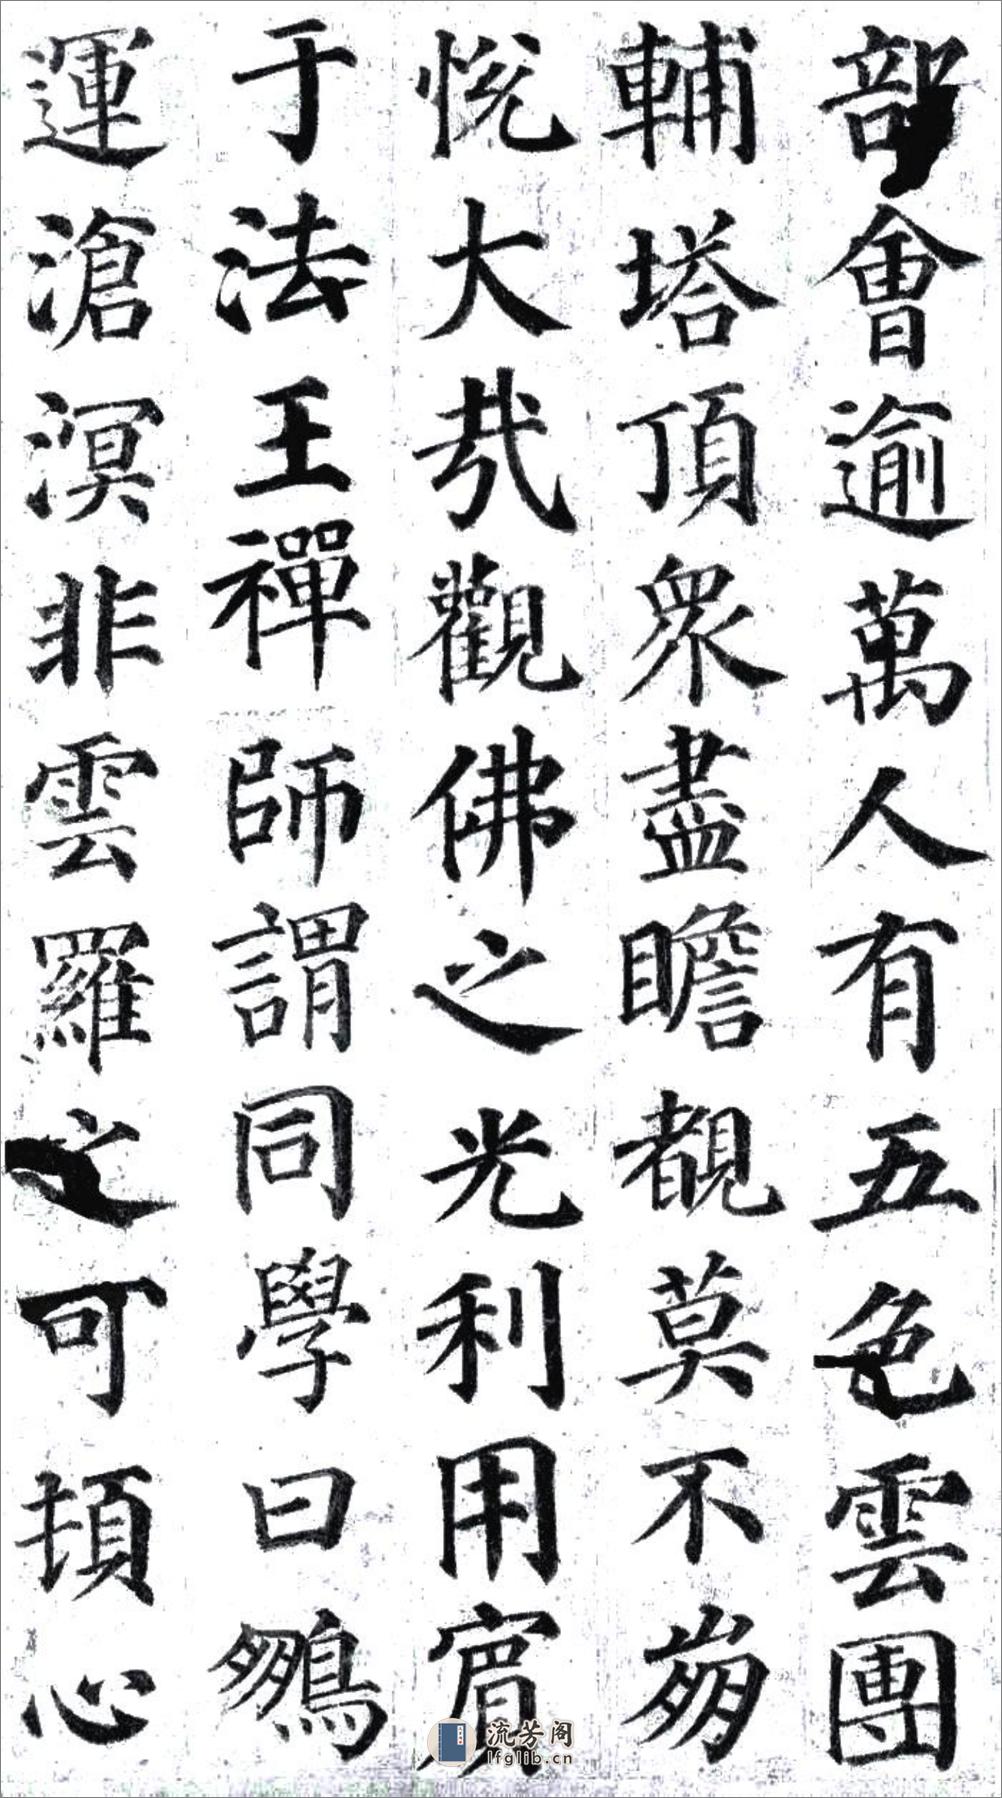 部會逾萬人有五色雲團
輔塔頂眾盡瞻覩莫不崩
悅大哉觀佛之光利用賓
于法王禪師謂同學曰鵬
運滄溟非雲羅之可頓心
流芳阁
lfglib.cn